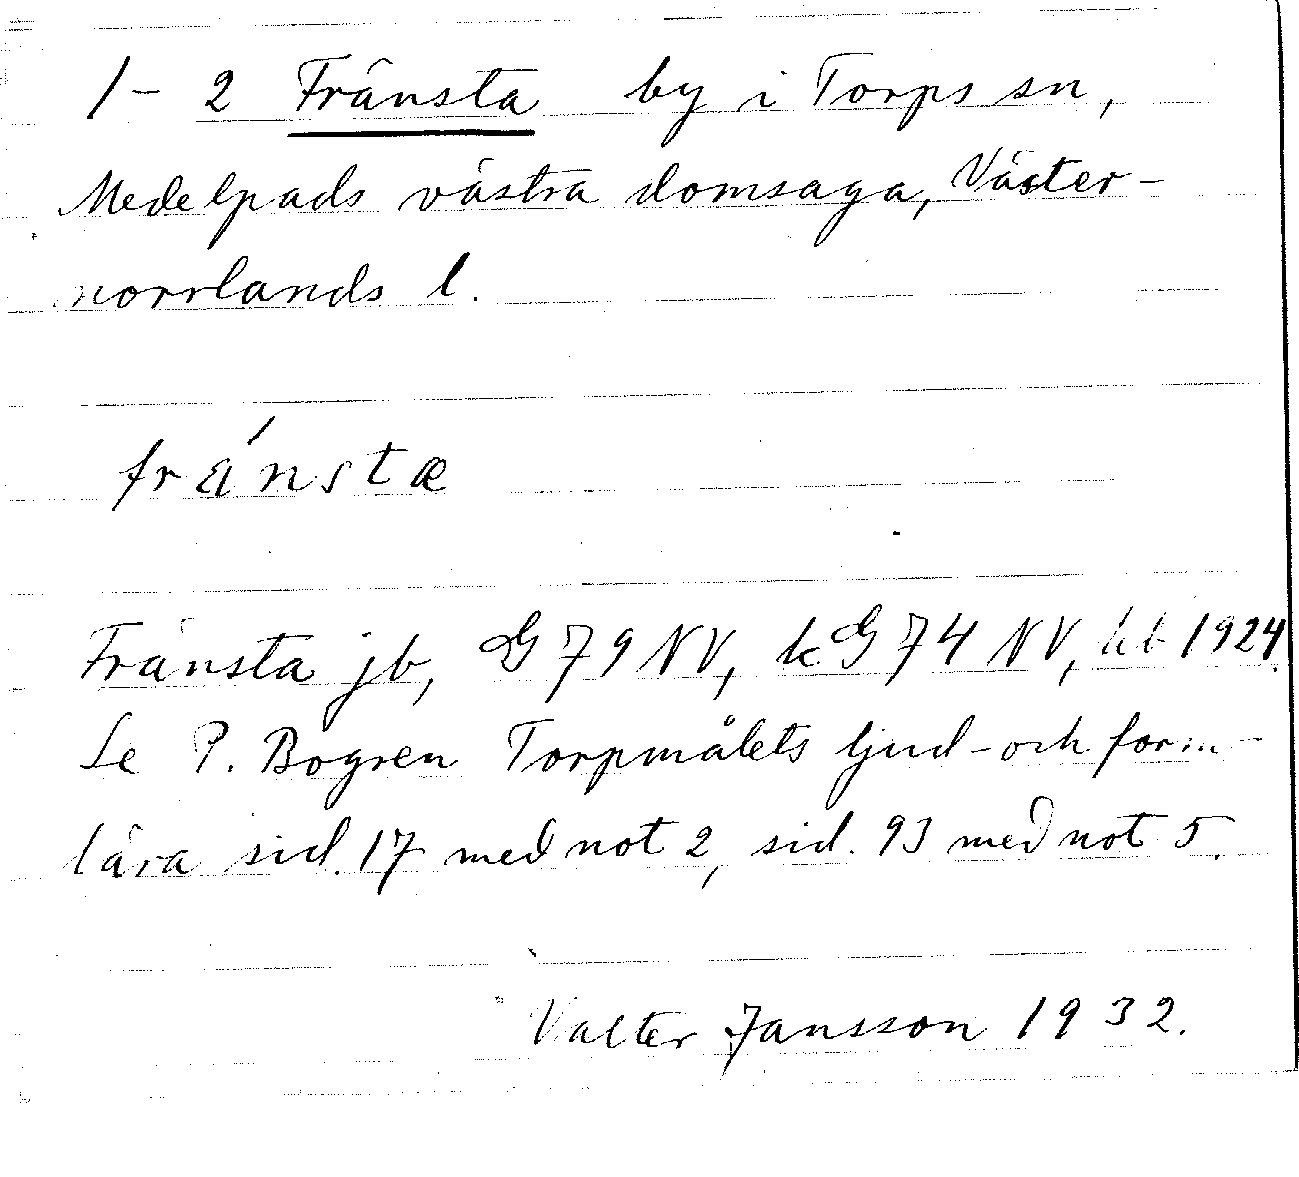 1-2 Fränsta by i Torps sn,
Medelpads västra domsaga, Väster-
norrlands l.
fränstæ
Fränsta jb, G 79 NV, kG 74 NV, hb 1924.
Se P. Bogren Torpmålets ljud- och form-
lära sid. 17 med not 2, sid. 93 med not 5.
Valter Jansson 1932.